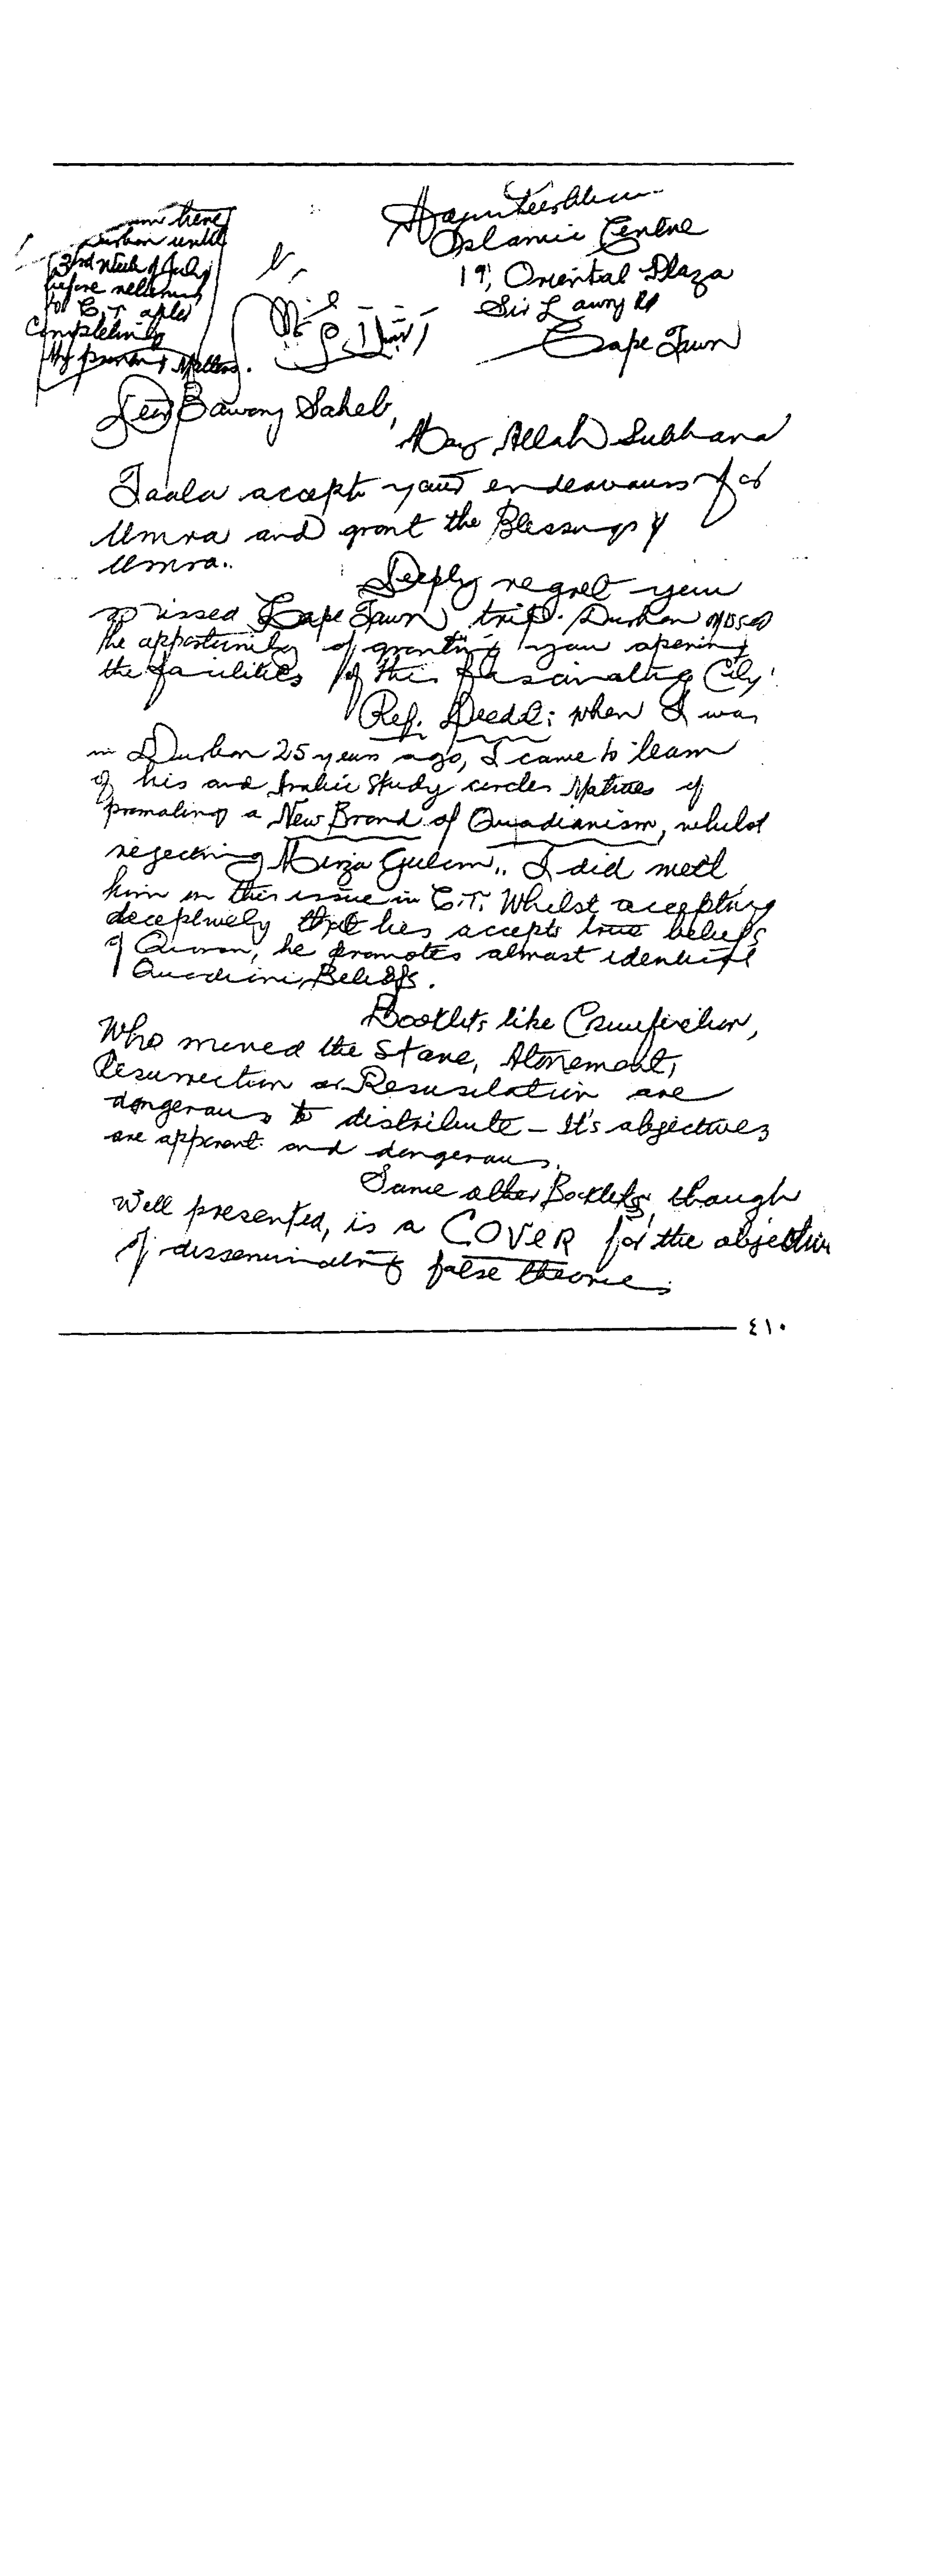 Islamic Centre
19, Oriental Plaza
Sir Lawry Rd
Cape Town
here
Durban until
3rd Week of July
before returning
to C.T. after
Completing
My Matters.
Dear Bawany Saheb,
May Allah Subhana
Taala accept your endeavours for
Umra and grant the Blessings of
Umra..
Deeply regret you
missed Cape Town trip. Durban missed
the opportunity of granting you opening
the facilities of this fascinating City.
Ref. Deedat: when I was
in Durban 25 years ago, I came to learn
of his and Arabic Study circles Motives of
promoting a New Brand of Quadianism, whilst
rejecting Mirza Gulam.. I did meet
him on this issue in C.T. Whilst accepting
deceptively that hes accepts true beliefs
of Quran, he promotes almost identical
Quadiani Beliefs.
Booklets like Crucifiction,
Who moved the Stone, Atonement,
Resurrection or Resusitation are
dangerous to distribute – It's objectives
are apparent and dangerous.
Some other Booklets, though
Well presented, is a COVER for the objective
of disseminating false theories
٤١٠